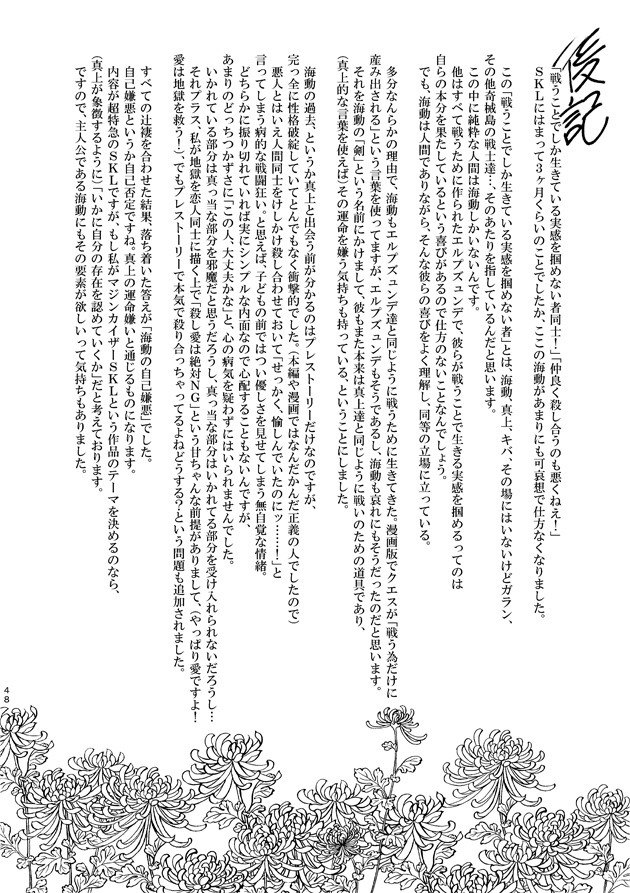 後記
「戦うことでしか生きている実感を掴めない者同士！」「仲良く殺し合うのも悪くねえ！」
ＳＫＬにはまって３ヶ月くらいのことでしたか、ここの海動があまりにも可哀想で仕方なくなりました。
この「戦うことでしか生きている実感を掴めない者」とは、海動、真上、キバ、その場にはいないけどガラン、
その他奇械島の戦士達…、そのあたりを指しているんだと思います。
この中に純粋な人間は海動しかいないんです。
他はすべて戦うために作られたエルプズュンデで、彼らが戦うことで生きる実感を掴めるってのは
自らの本分を果たしているという喜びがあるので仕方のないことなんでしょう。
でも、海動は人間でありながら、そんな彼らの喜びをよく理解し、同等の立場に立っている。
多分なんらかの理由で、海動もエルプズュンデ達と同じように戦うために生きてきた。漫画版でクエスが「戦う為だけに
産み出される」という言葉を使ってますが、エルプズュンデもそうであるし、海動も哀れにもそうだったのだと思います。
それを海動の「剣」という名前にかけまして、彼もまた本来は真上達と同じように戦いのための道具であり、
（真上的な言葉を使えば）その運命を嫌う気持ちも持っている、ということにしました。
海動の過去、というか真上と出会う前が分かるのはプレストーリーだけなのですが、
完っ全に性格破綻していてとんでもなく衝撃的でした。（本編や漫画ではなんだかんだ正義の人でしたので）
悪人とはいえ人間同士をけしかけ殺し合わせておいて「せっかく、愉しんでいたのにッ……！」と
言ってしまう病的な戦闘狂い。と思えば、子どもの前ではつい優しさを見せてしまう無自覚な情緒。
どちらかに振り切れていれば実にシンプルな内面なので心配することもないんですが、
あまりのどっちつかずさに「この人、大丈夫かな」と、心の病気を疑わずにはいられませんでした。
いかれている部分は真っ当な部分を邪魔だと思うだろうし、真っ当な部分はいかれてる部分を受け入れられないだろうし…
それプラス、私が地獄を恋人同士に描く上で「殺し愛は絶対ＮＧ」という甘ちゃんな前提がありまして、（やっぱり愛ですよ！
愛は地獄を救う！）「でもプレストーリーで本気で殺り合っちゃってるよねどうする？」という問題も追加されました。
すべての辻褄を合わせた結果、落ち着いた答えが「海動の自己嫌悪」でした。
自己嫌悪というか自己否定ですね。真上の運命嫌いと通じるものになります。
内容が超特急のＳＫＬですが、もし私がマジンカイザーＳＫＬという作品のテーマを決めるのなら、
（真上が象徴するように）「いかに自分の存在を認めていくか」だと考えております。
ですので、主人公である海動にもその要素が欲しいって気持ちもありました。
48